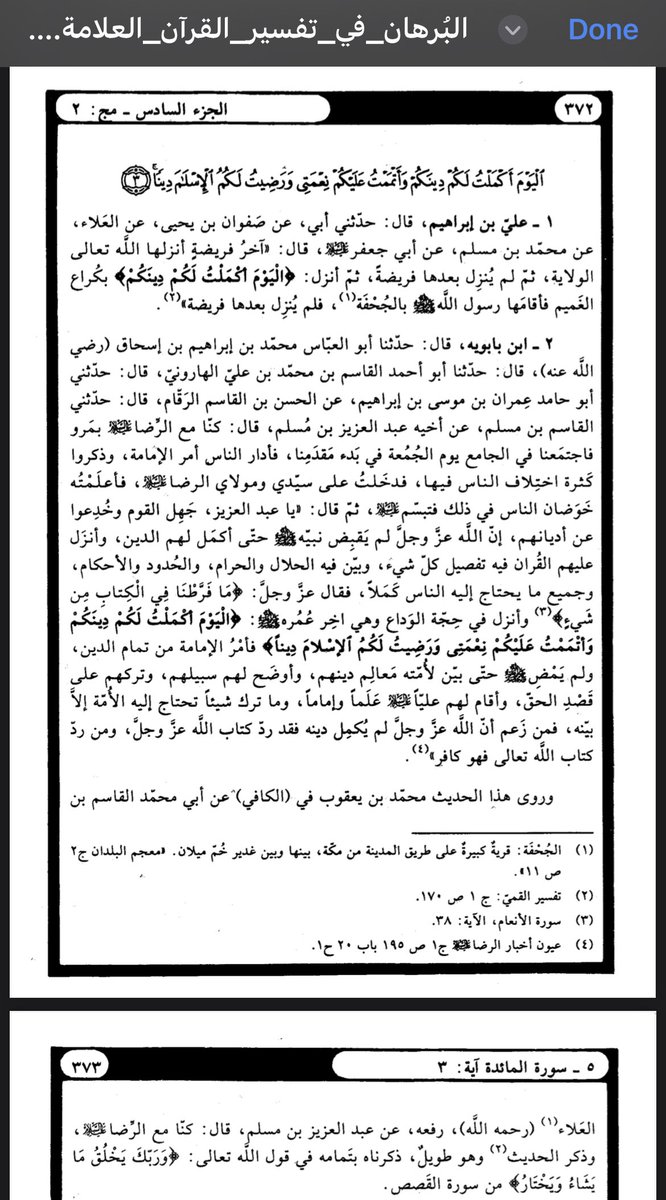 البُرهان_في_تفسير_القرآن_العلامة....
Done
٣٧٢
الجزء السادس ـ مج: ٢
اَلْيَوْمَ أَكْمَلْتُ لَكُمْ دِينَكُمْ وَأَتْمَمْتُ عَلَيْكُمْ نِعْمَتِي وَرَضِيتُ لَكُمُ ٱلْإِسْلَٰمَ دِينًا ٣
١ ـ عليّ بن إبراهيم، قال: حدّثني أبي، عن صَفوان بن يحيى، عن العَلاء،
عن محمّد بن مسلم، عن أبي جعفر عليه السلام، قال: «آخرُ فريضةٍ أنزلها اللَّه تعالى
الولاية، ثمّ لم يُنزِل بعدها فريضةً، ثمّ أنزل: ﴿الْيَوْمَ أكْمَلْتُ لَكُمْ دِينَكُمْ﴾ بكُراع
الغَميم فأقامَها رسول اللَّه ﷺ بالجُحْفَة(١)، فلم يُنزِل بعدها فريضة»(٢).
٢ ـ ابن بابويه، قال: حدّثنا أبو العبّاس محمّد بن إبراهيم بن إسحاق (رضي
اللَّه عنه)، قال: حدّثنا أبو أحمد القاسم بن محمّد بن عليّ الهارونيّ، قال: حدّثني
أبو حامد عِمران بن موسى بن إبراهيم، عن الحسن بن القاسم الرَقّام، قال: حدّثني
القاسم بن مسلم، عن أخيه عبد العزيز بن مُسلم، قال: كنّا مع الرِّضا عليه السلام بمَرو
فاجتمَعنا في الجامع يوم الجُمُعة في بَدء مَقدَمِنا، فأدار الناس أمر الإمامة، وذكروا
كَثرة اختِلاف الناس فيها، فدخَلتُ على سيّدي ومولاي الرضا عليه السلام، فأعلَمْتُه
خَوَضان الناس في ذلك فتبسّم عليه السلام، ثمّ قال: «يا عبد العزيز، جَهِل القوم وخُدِعوا
عن أديانهم، إنّ اللَّه عزَّ وجلَّ لم يَقبِض نبيّه ﷺ حتّى أكمَل لهم الدين، وأنزَل
عليهم القُران فيه تفصيل كلّ شيء، وبيّن فيه الحلال والحرام، والحُدود والأحكام،
وجميع ما يحتاج إليه الناس كَمَلاً، فقال عزَّ وجلَّ: ﴿مَا فَرَّطْنَا فِي الْكِتابِ مِن
شَيءٍ﴾(٣) وأنزل في حِجّة الوَداع وهي اخِر عُمُره ﷺ: ﴿الْيَوْمَ أكْمَلْتُ لَكُمْ دِينَكُمْ
وَأتْمَمْتُ عَلَيْكُمْ نِعْمَتِى وَرَضِيتُ لَكُمُ الإسْلامَ دِيناً﴾ فأمْرُ الإمامة من تمام الدين،
ولم يَمْضِ ﷺ حتّى بيّن لأُمّته مَعالِم دينهم، وأوضَح لهم سبيلهم، وتركهم على
قَصْدِ الحقّ، وأقام لهم عليّاً عليه السلام عَلَماً وإماماً، وما ترك شيئاً تحتاج إليه الأُمّة إلاَّ
بيّنه، فمن زَعم أنّ اللَّه عزَّ وجلَّ لم يُكمِل دينه فقد ردّ كتاب اللَّه عزَّ وجلَّ، ومن ردّ
كتاب اللَّه تعالى فهو كافر»(٤).
وروى هذا الحديث محمّد بن يعقوب في (الكافي) عن أبي محمّد القاسم بن
(١) الجُحْفَة: قريةٌ كبيرةٌ على طريق المدينة من مكّة، بينها وبين غدير خُمّ ميلان. «معجم البلدان ج٢
ص ١١».
(٢) تفسير القميّ: ج ١ ص ١٧٠.
(٣) سورة الأنعام، الآية: ٣٨.
(٤) عيون أخبار الرضا عليه السلام ج١ ص ١٩٥ باب ٢٠ ح١.
٥ ـ سورة المائدة آية: ٣
٣٧٣
العَلاء(١) (رحمه اللَّه)، رفعه، عن عبد العزيز بن مسلم، قال: كنّا مع الرِّضا عليه السلام،
وذكر الحديث(٢) وهو طويلٌ، ذكرناه بتَمامه في قول اللَّه تعالى: ﴿وَرَبّكَ يَخْلُقُ مَا
يَشَاءُ وَيَخْتَارُ﴾ من سورة القَصص.